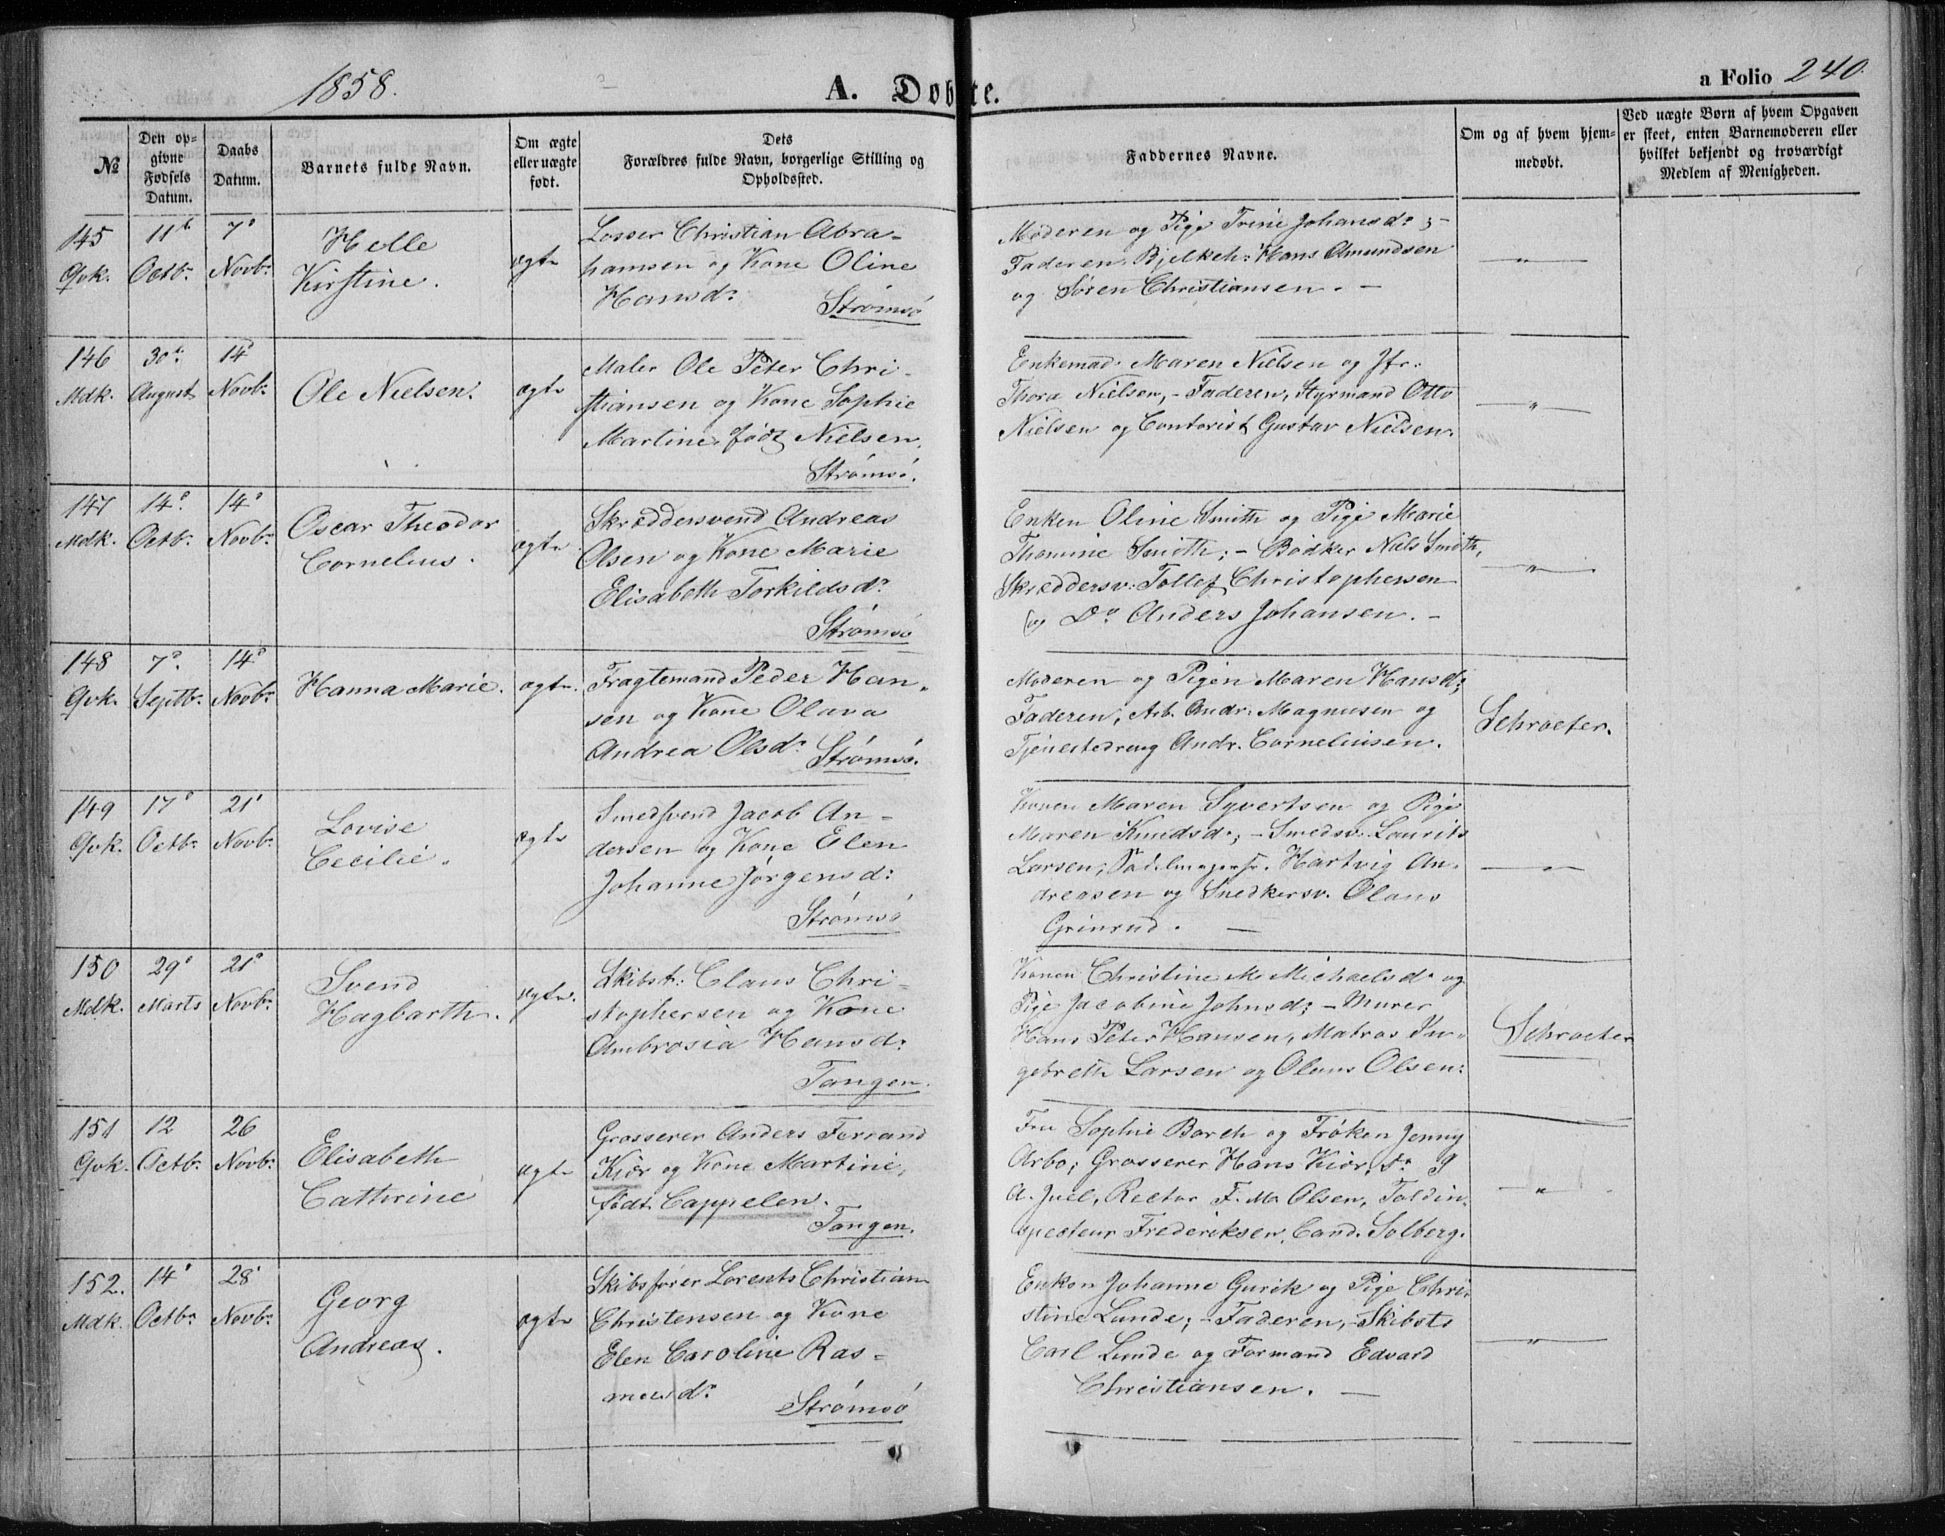 1858.
A. Døbte.
a Folio 240.
№
Den opgivne Fødsels Datum.
Daabs Datum.
Barnets fulde Navn.
Om ægte eller uægte født.
Dets Forældres fulde Navn, borgerlige Stilling og Opholdssted.
Faddernes Navne.
Om og af hvem hjemmedøbt.
Ved uægte Børn af hvem Opgaven er skeet, enten Barnemoderen eller hvilket bekjendt og troværdigt Medlem af Menigheden.
145 11te 7de
Qvk. Octbr. Novbr.
Helle
Kirstine.
ægte
Losser Christian Abra-
hamsen og Kone Oline
Hansdr.
Strømsø
Moderen og Pige Trine Johansdr; -
Faderen, Bjelkeh: Hans Amundsen
og Søren Christiansen. -
— " —
146 30te 14de
Mdk. August Novbr.
Ole Nielsen.
ægte
Maler Ole Peter Chri-
stiansen og Kone Sophie
Martine, født Nielsen.
Strømsø.
Enkemad. Maren Nielsen og Jfr.
Thora Nielsen, - Faderen, Styrmand Otto
Nielsen og Contorist Gustav Nielsen.
— " —
147 14de 14de
Mdk. Octbr. Novbr.
Oscar Theodor
Cornelius.
ægte
Skræddersvend Andreas
Olsen og Kone Marie
Elisabeth Torkildsdr.
Strømsø
Enken Oline Smith og Pige Marie
Thomine Smith; - Bødker Niels Smith,
Skræddersv: Tollef Christophersen
og Do Anders Johansen. -
— " —
148 7de 14de
Qvk. Septbr. Novbr.
Hanna Marie.
ægte.
Fragtemand Peder Han-
sen og Kone Olava
Andrea Olsdr. Strømsø.
Moderen og Pigen Maren Hansdr;
Faderen, Arb. Andr. Magnusen og
Tjenestedreng Andr. Corneliusen.
Schroeter.
149 17de 21de
Qvk. Octbr. Novbr.
Lovise
Cecilie.
ægte
Smedsvend Jacob An-
dersen og Kone Elen
Johanne Jørgensdr.
Strømsø
Konen Maren Syvertsen og Pige
Maren Knudsdr; - Smedsv. Laurits
Larsen, Sadelmagersv. Hartvig An-
dreasen og Snedkersv. Olaus
Grinrud. —
— " —
150 29de 21de
Mdk. Marts Novbr.
Svend
Hagbarth.
ægte.
Skibst: Claus Chri-
stophersen og Kone
Ambrosia Hansdr.
Tangen.
Konen Christine M. Michaelsdr og
Pige Jacobine Johnsdr; - Murer
Hans Peter Hansen, Matros In-
gebreth Larsen og Olaus Olsen.
Schroeter
151 12 26
Qvk. Octbr. Novbr.
Elisabeth
Cathrine
ægte
Grosserer Anders Ferrand
Kiær og Kone Martine,
født Cappelen.
Tangen.
Fru Sophie Borch og Frøken Jenny
Arbo; Grosserer Hans Kiær, Dr.
A. Juel, Rector F. M. Olsen, Toldin-
specteur Frederiksen, Cand. Solberg.
— " —
152. 14de 28de
Mdk. Octbr. Novbr.
Georg
Andreas.
ægte
Skibsfører Lorents Christian
Christensen og Kone
Elen Caroline Ras-
musdr.
Strømsø
Enken Johanne Gurik og Pige Chri-
stine Lunde; - Faderen, Skibsts
Carl Lunde og Formand Edvard
Christiansen. —
— " —